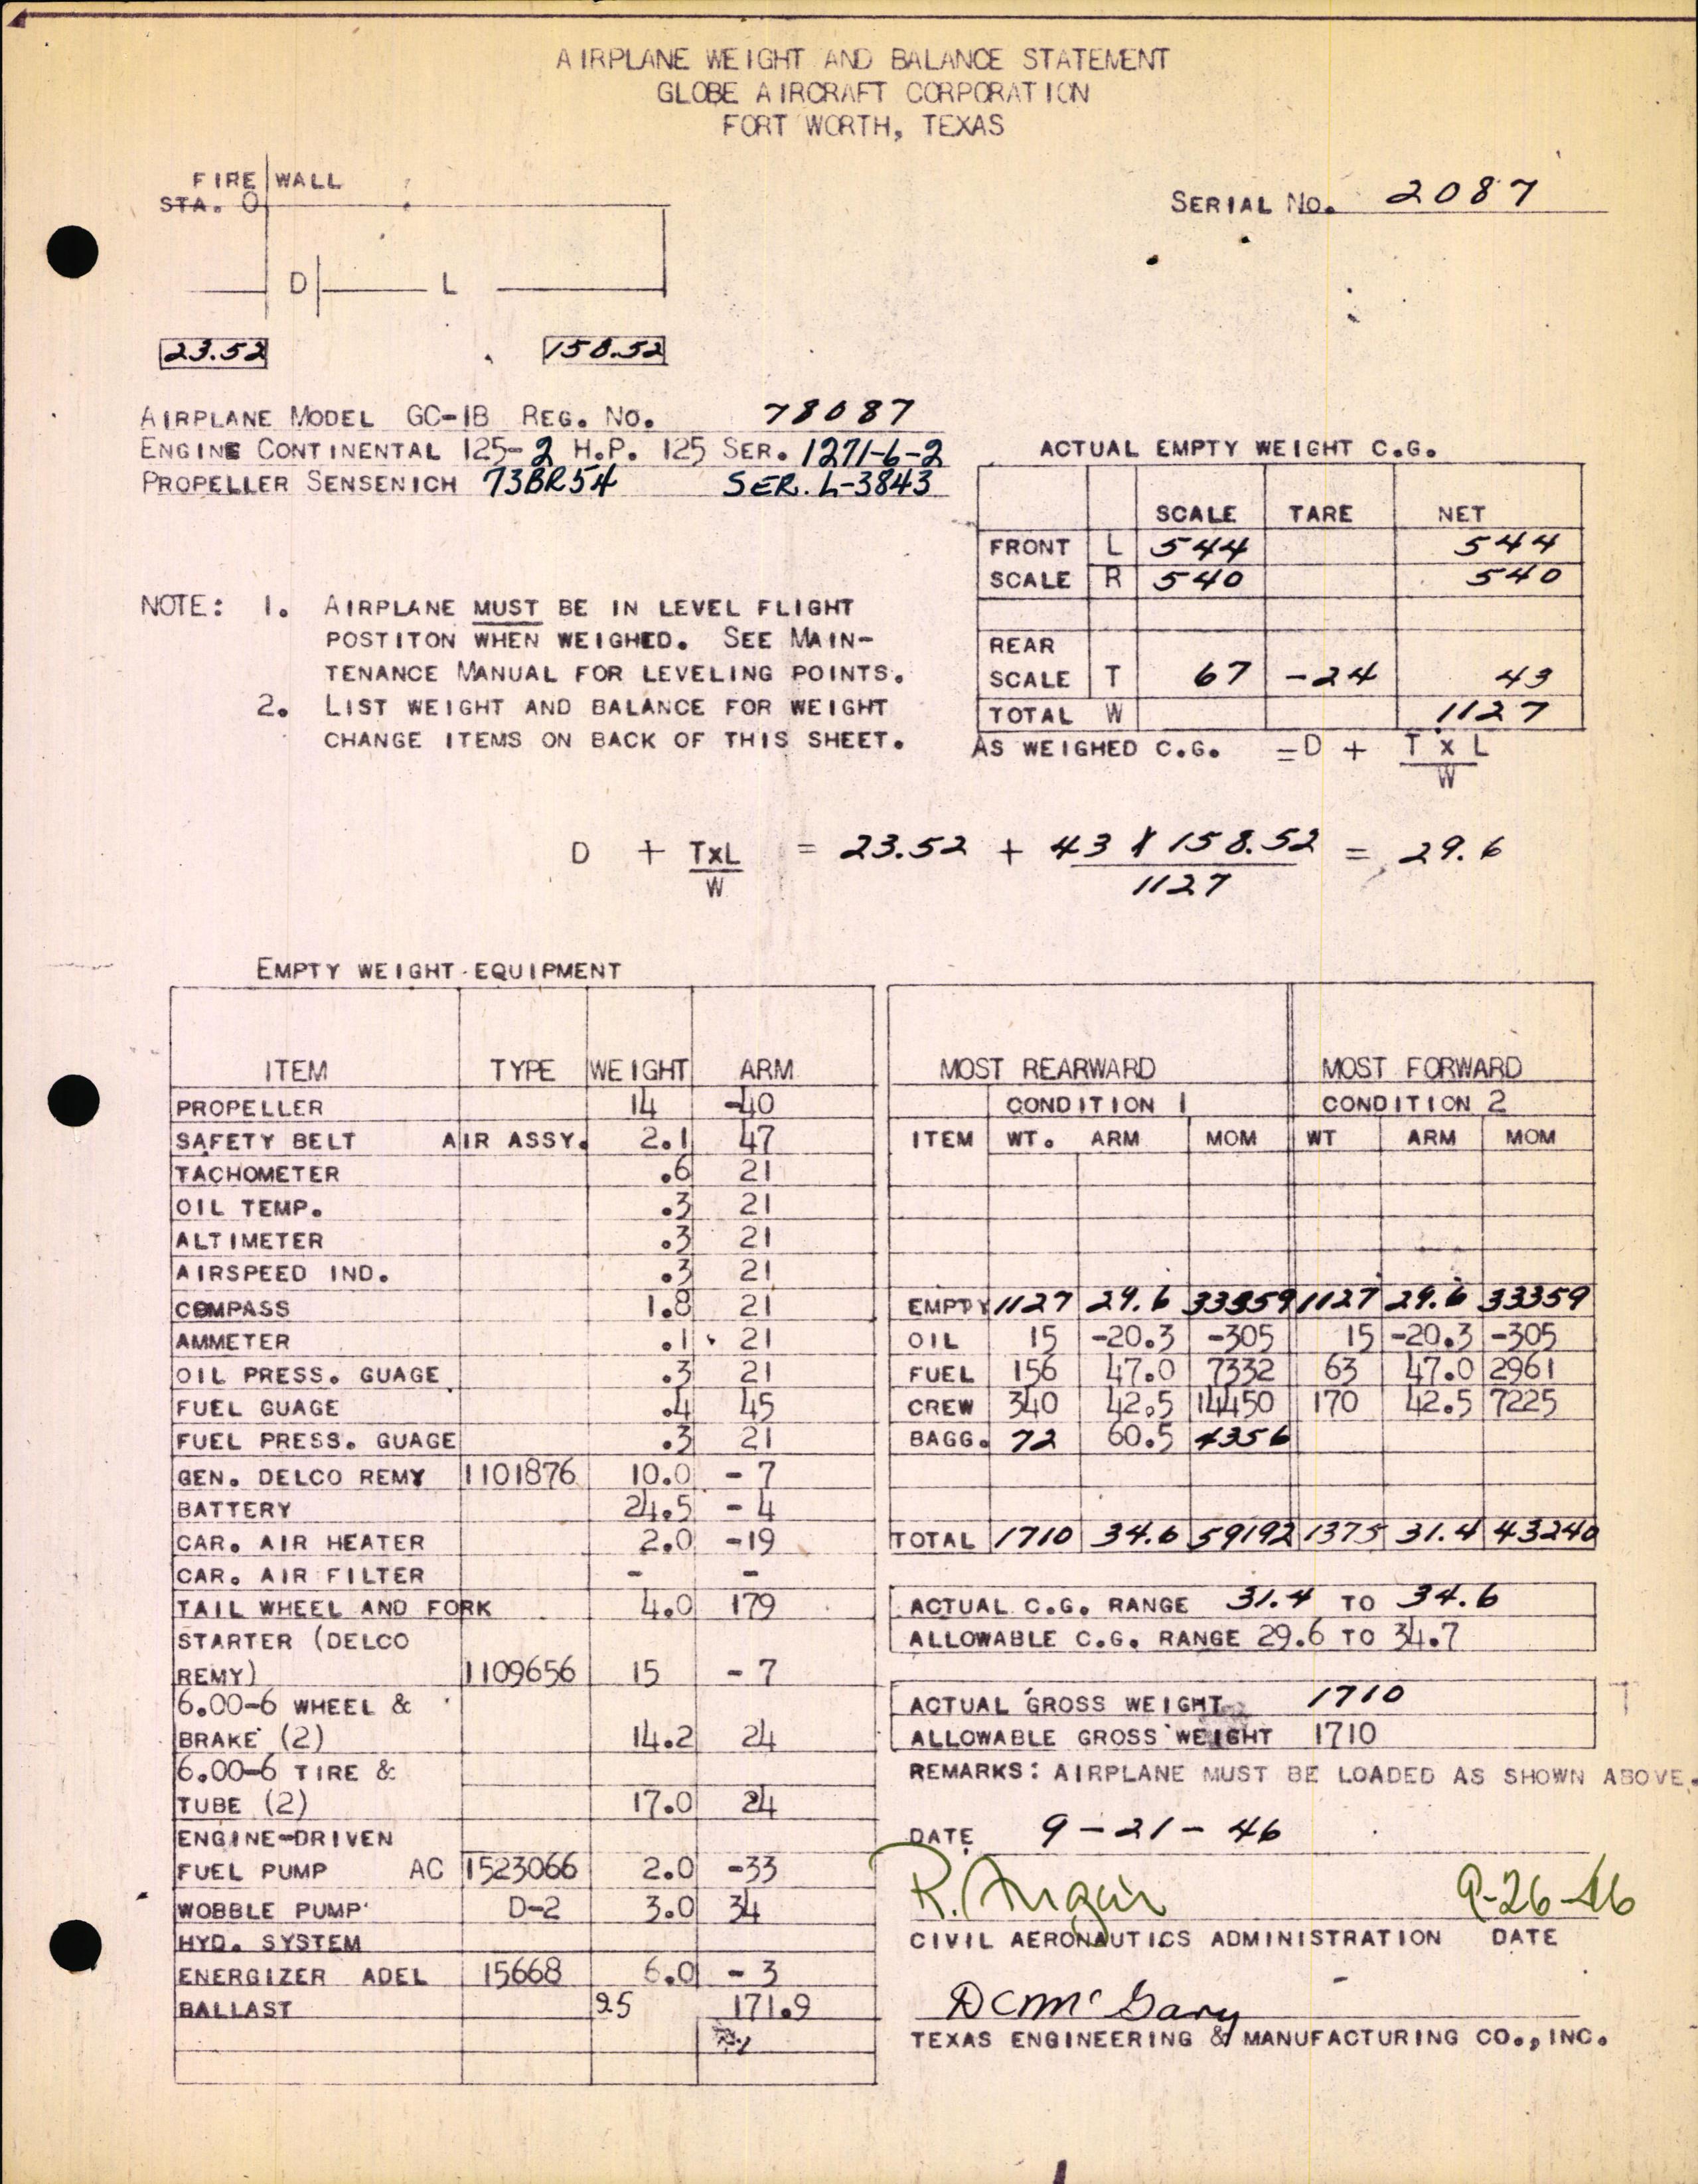 AIRPLANE WEIGHT AND BALANCE STATEMENT
GLOBE AIRCRAFT CORPORATION
FORT WORTH, TEXAS
FIRE WALL
STA. 0
SERIAL NO. 2087
D L
23.52 158.52
AIRPLANE MODEL GC-1B REG. NO. 78087
ENGINE CONTINENTAL 125-2 H.P. 125 SER. 1271-6-2
PROPELLER SENSENICH 73BR54 SER. L-3843
ACTUAL EMPTY WEIGHT C.G.
SCALE TARE NET
FRONT L 544 544
SCALE R 540 540
REAR
SCALE T 67 -24 43
TOTAL W 1127
AS WEIGHED C.G. = D + T X L
W
NOTE: 1. AIRPLANE MUST BE IN LEVEL FLIGHT
POSTITON WHEN WEIGHED. SEE MAIN-
TENANCE MANUAL FOR LEVELING POINTS.
2. LIST WEIGHT AND BALANCE FOR WEIGHT
CHANGE ITEMS ON BACK OF THIS SHEET.
D + TXL = 23.52 + 43 X 158.52 = 29.6
W 1127
EMPTY WEIGHT EQUIPMENT
ITEM TYPE WEIGHT ARM
PROPELLER 14 -40
SAFETY BELT AIR ASSY. 2.1 47
TACHOMETER .6 21
OIL TEMP. .3 21
ALTIMETER .3 21
AIRSPEED IND. .3 21
COMPASS 1.8 21
AMMETER .1 21
OIL PRESS. GUAGE .3 21
FUEL GUAGE .4 45
FUEL PRESS. GUAGE .3 21
GEN. DELCO REMY 1101876 10.0 - 7
BATTERY 24.5 - 4
CAR. AIR HEATER 2.0 -19
CAR. AIR FILTER - -
TAIL WHEEL AND FORK 4.0 179
STARTER (DELCO
REMY) 1109656 15 - 7
6.00-6 WHEEL &
BRAKE (2) 14.2 24
6.00-6 TIRE &
TUBE (2) 17.0 24
ENGINE-DRIVEN
FUEL PUMP AC 1523066 2.0 -33
WOBBLE PUMP D-2 3.0 34
HYD. SYSTEM
ENERGIZER ADEL 15668 6.0 - 3
BALLAST 9.5 171.9
MOST REARWARD MOST FORWARD
CONDITION 1 CONDITION 2
ITEM WT. ARM MOM WT ARM MOM
EMPTY 1127 29.6 33359 1127 29.6 33359
OIL 15 -20.3 -305 15 -20.3 -305
FUEL 156 47.0 7332 63 47.0 2961
CREW 340 42.5 14450 170 42.5 7225
BAGG. 72 60.5 4356
TOTAL 1710 34.6 59192 1375 31.4 43240
ACTUAL C.G. RANGE 31.4 TO 34.6
ALLOWABLE C.G. RANGE 29.6 TO 34.7
ACTUAL GROSS WEIGHT 1710
ALLOWABLE GROSS WEIGHT 1710
REMARKS: AIRPLANE MUST BE LOADED AS SHOWN ABOVE.
DATE 9-21-46
R. 9-26-46
CIVIL AERONAUTICS ADMINISTRATION DATE
DC McGary
TEXAS ENGINEERING & MANUFACTURING CO., INC.